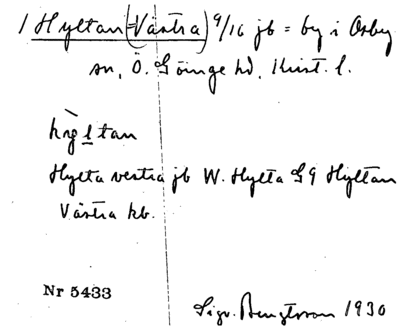 1 Hyltan (=Västra) 9/16 jb = by i Örby
sn, Ö. Göinge hd, Krist. l.
hỳltan
Hylta vestra jb W. Hylta GG Hyltan
Västra kb.
Nr 5433
Sigv. Bengtsson 1930